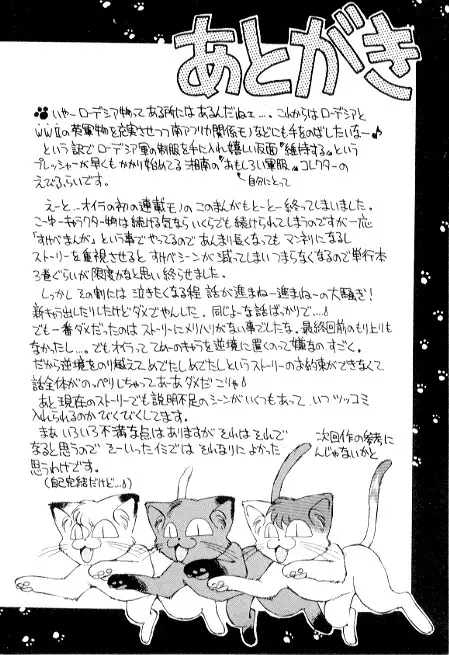 あとがき
いやーローデシア物ってある所にはあるんだねェ…。これからはローデシアと
WWⅡの英軍物を充実させつつ南アフリカ関係モノなどにも手をのばしたいなー♪
という訳でローデシア軍の制服を手に入れ嬉しい反面〝維持する〟という
プレッシャーが早くもかかり始めてる湘南の〝おもしろい軍服〟コレクターの
えびふらいです。
自分にとって
えーと…オイラの初の連載モノのこのまんがもとーとー終ってしまいました。
こーゆーキャラクター物は続ける気ならいくらでも続けられてしまうのですが一応
「すけべまんが」という事でやってるのであんまり長くなってもマンネリになるし
ストーリーを重視させると すけべシーンが減ってしまいつまらなくなるので単行本
3巻ぐらいが限度かなと思い終らせました。
しっかし その割には 泣きたくなる程 話が進まねー進まねーの大騒ぎ!
新キャラ出したりしたけどダメでやんした。同じよーな話ばっかりで…♪
でも一番ダメだったのは ストーリーにメリハリがない事でしたな。最終回前のもり上りも
なかったし…。でもオイラって てめーのキャラを逆境に置くのって嫌なの すごく。
だから逆境をのり越えて めでたしめでたしというストーリーのお約束ができなくて
話全体がのっぺりしちゃってあーあ ダメだこりゃ♪
あと現在のストーリーでも説明不足のシーンがいくつもあって、いつ ツッコミ
入れられるのか びくびくしてます。
まあ いろいろ不満な点はありますが それはそれで 次回作の参考に
なると思うので そーいったイミでは それなりに よかった んじゃないかと
思うわけです。
(自己完結だけど…♪)